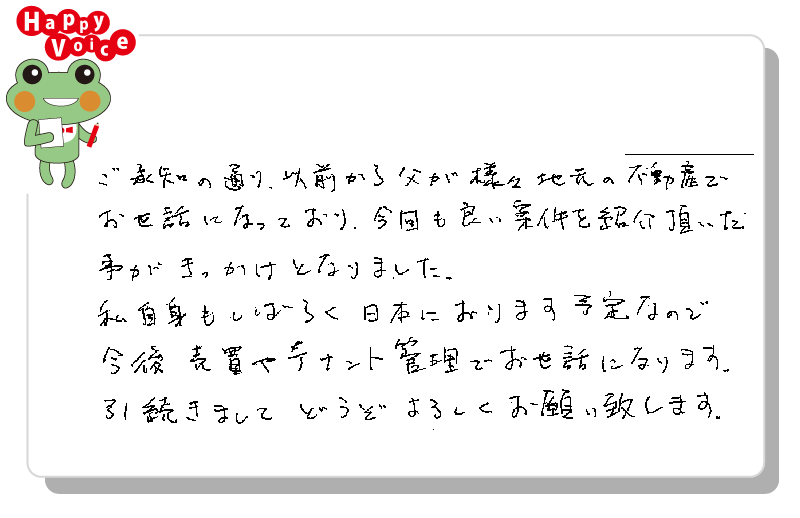 Happy
Voice
ご承知の通り、以前から父が様々地元の不動産で
お世話になっており、今回も良い案件を紹介頂いた
事がきっかけとなりました。
私自身もしばらく日本におります予定なので
今後売買やテナント管理でお世話になります。
引続きましてどうぞよろしくお願い致します。